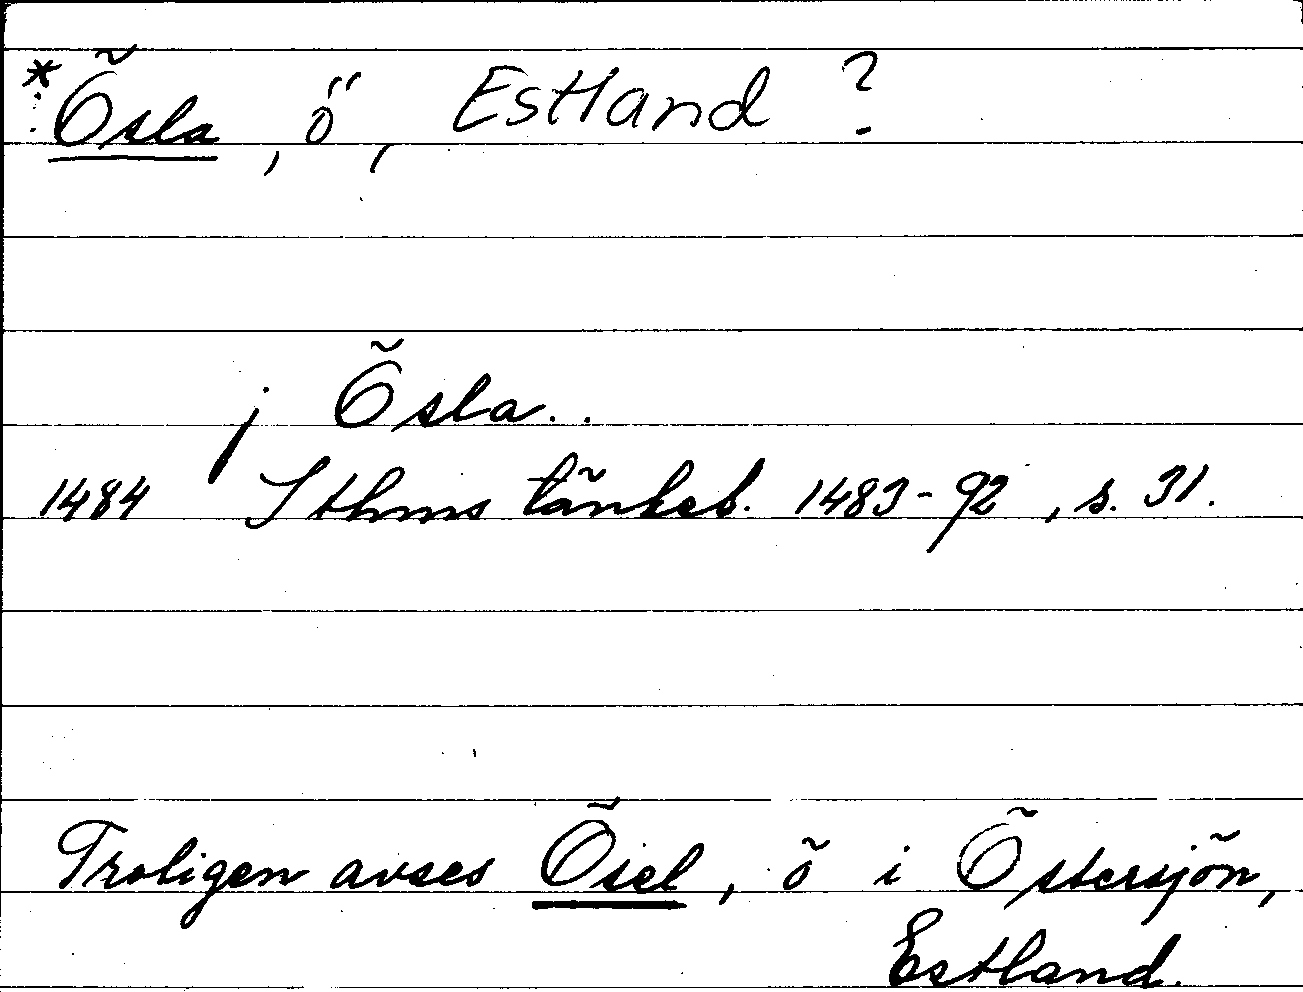 * Ösla, ö, Estland ?
j Ösla..
1484 Sthms tänkeb. 1483-92, s. 31.
Troligen avses Ösel, ö i Östersjön,
Estland.